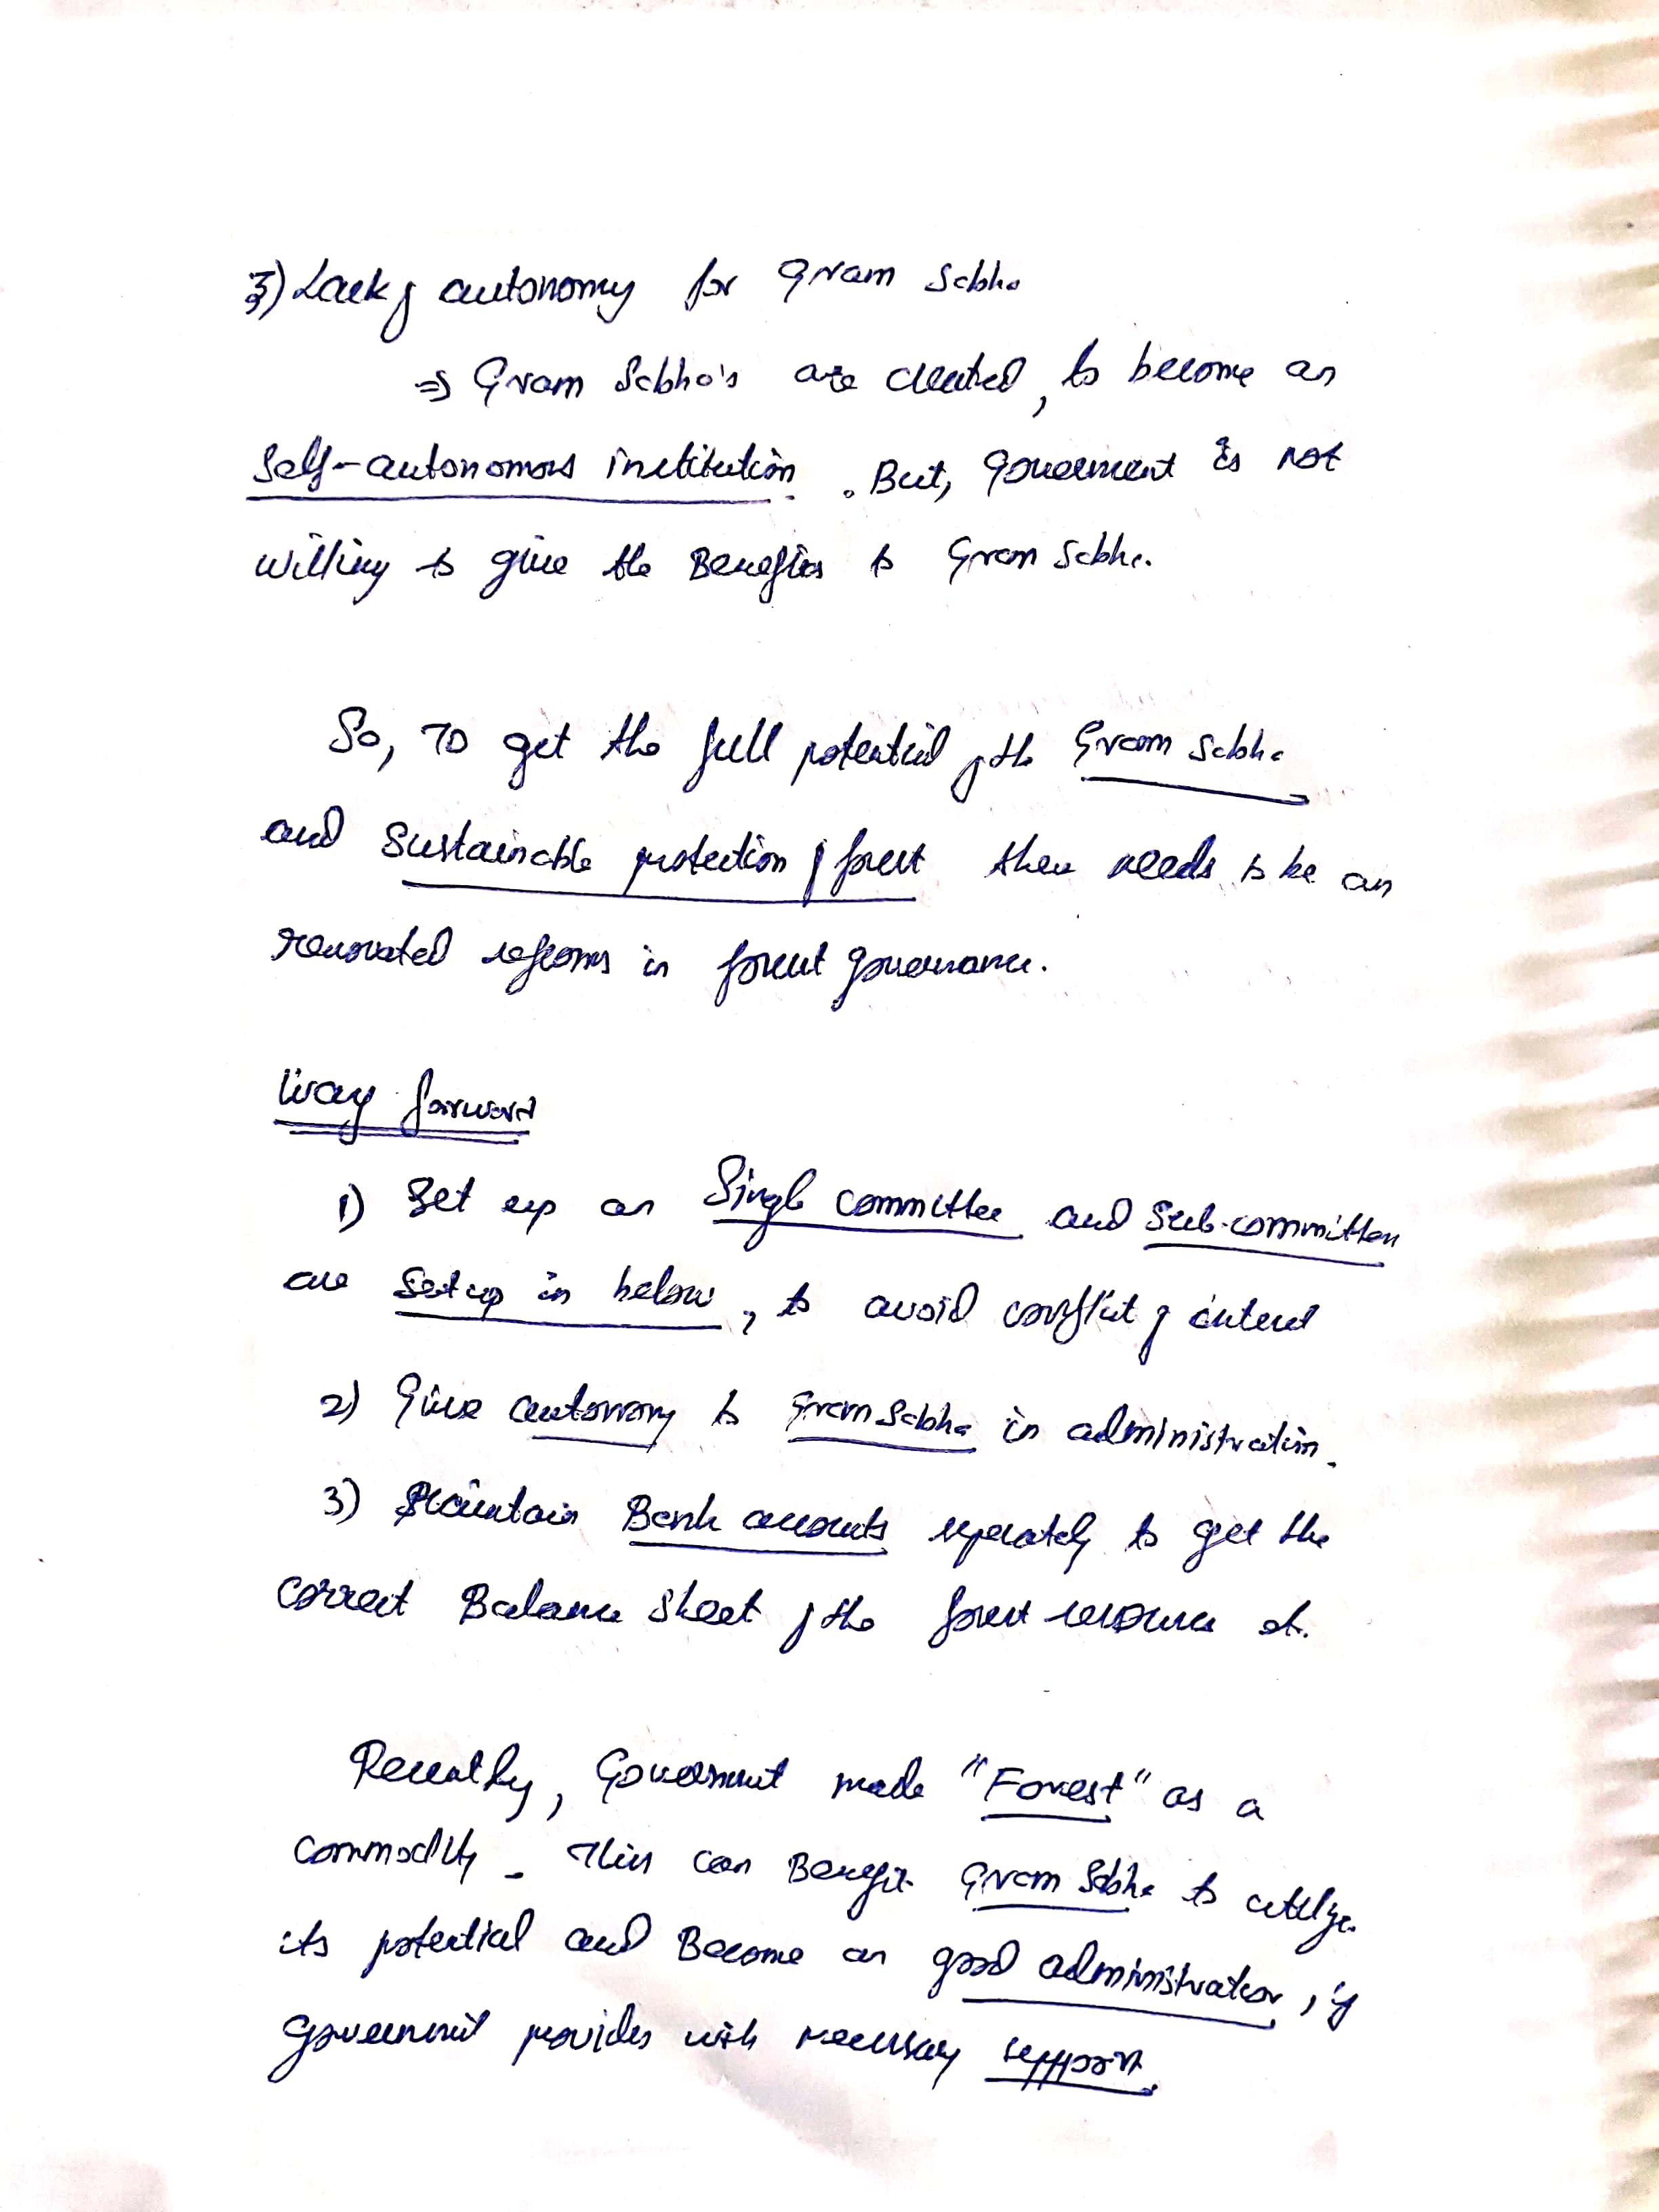 3) Lack of autonomy for Gram Sabha
⇒ Gram Sabha's are created, to become an
Self-autonomous institution. But, Government is not
willing to give the Benefits to Gram Sabha.
So, To get the full potential of the Gram Sabha
and Sustainable protection of forest there needs to be an
renovated reforms in forest governance.
Way forward
1) Set up an Single committee and Sub-committee
are Setup in below, to avoid conflict of interest
2) Give autonomy to Gram Sabha in administration.
3) Maintain Bank accounts seperately to get the
correct Balance Sheet of the forest resource
Recently, Government made "Forest" as a
commodity. This can Benefit Gram Sabha to utilize
its potential and Become an good administration, if
government provides with necessary support.